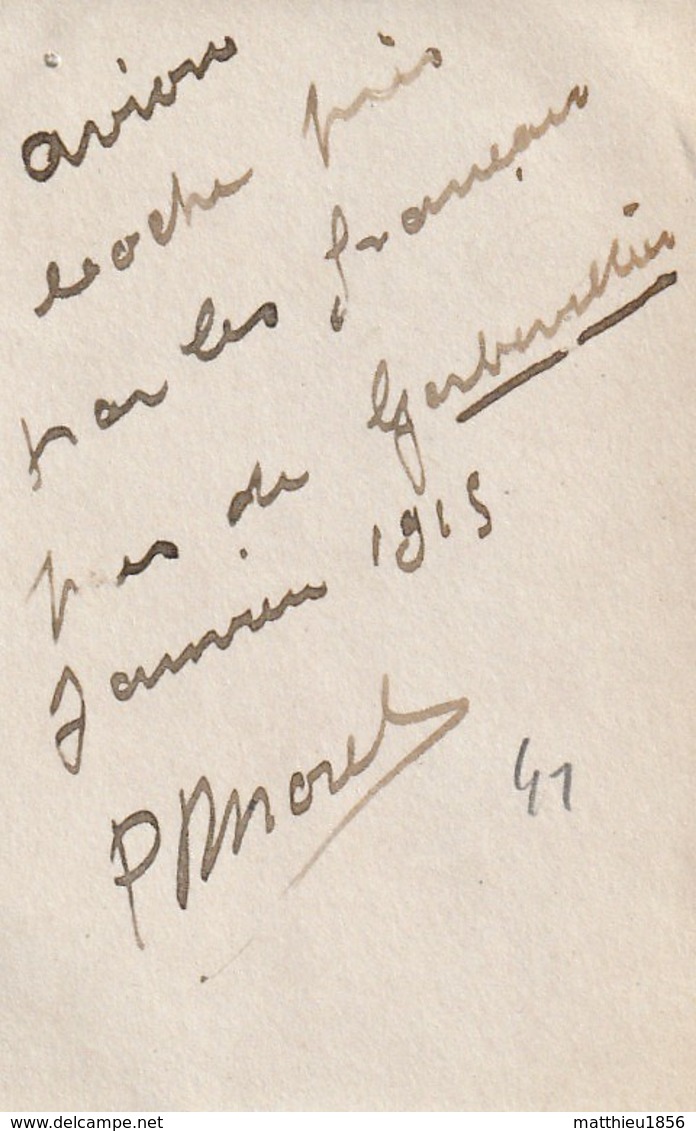 avion
boche pris
par les français
près de Gerbeviller
Janvier 1915
P Morel
41
delcampe.net
matthieu1856